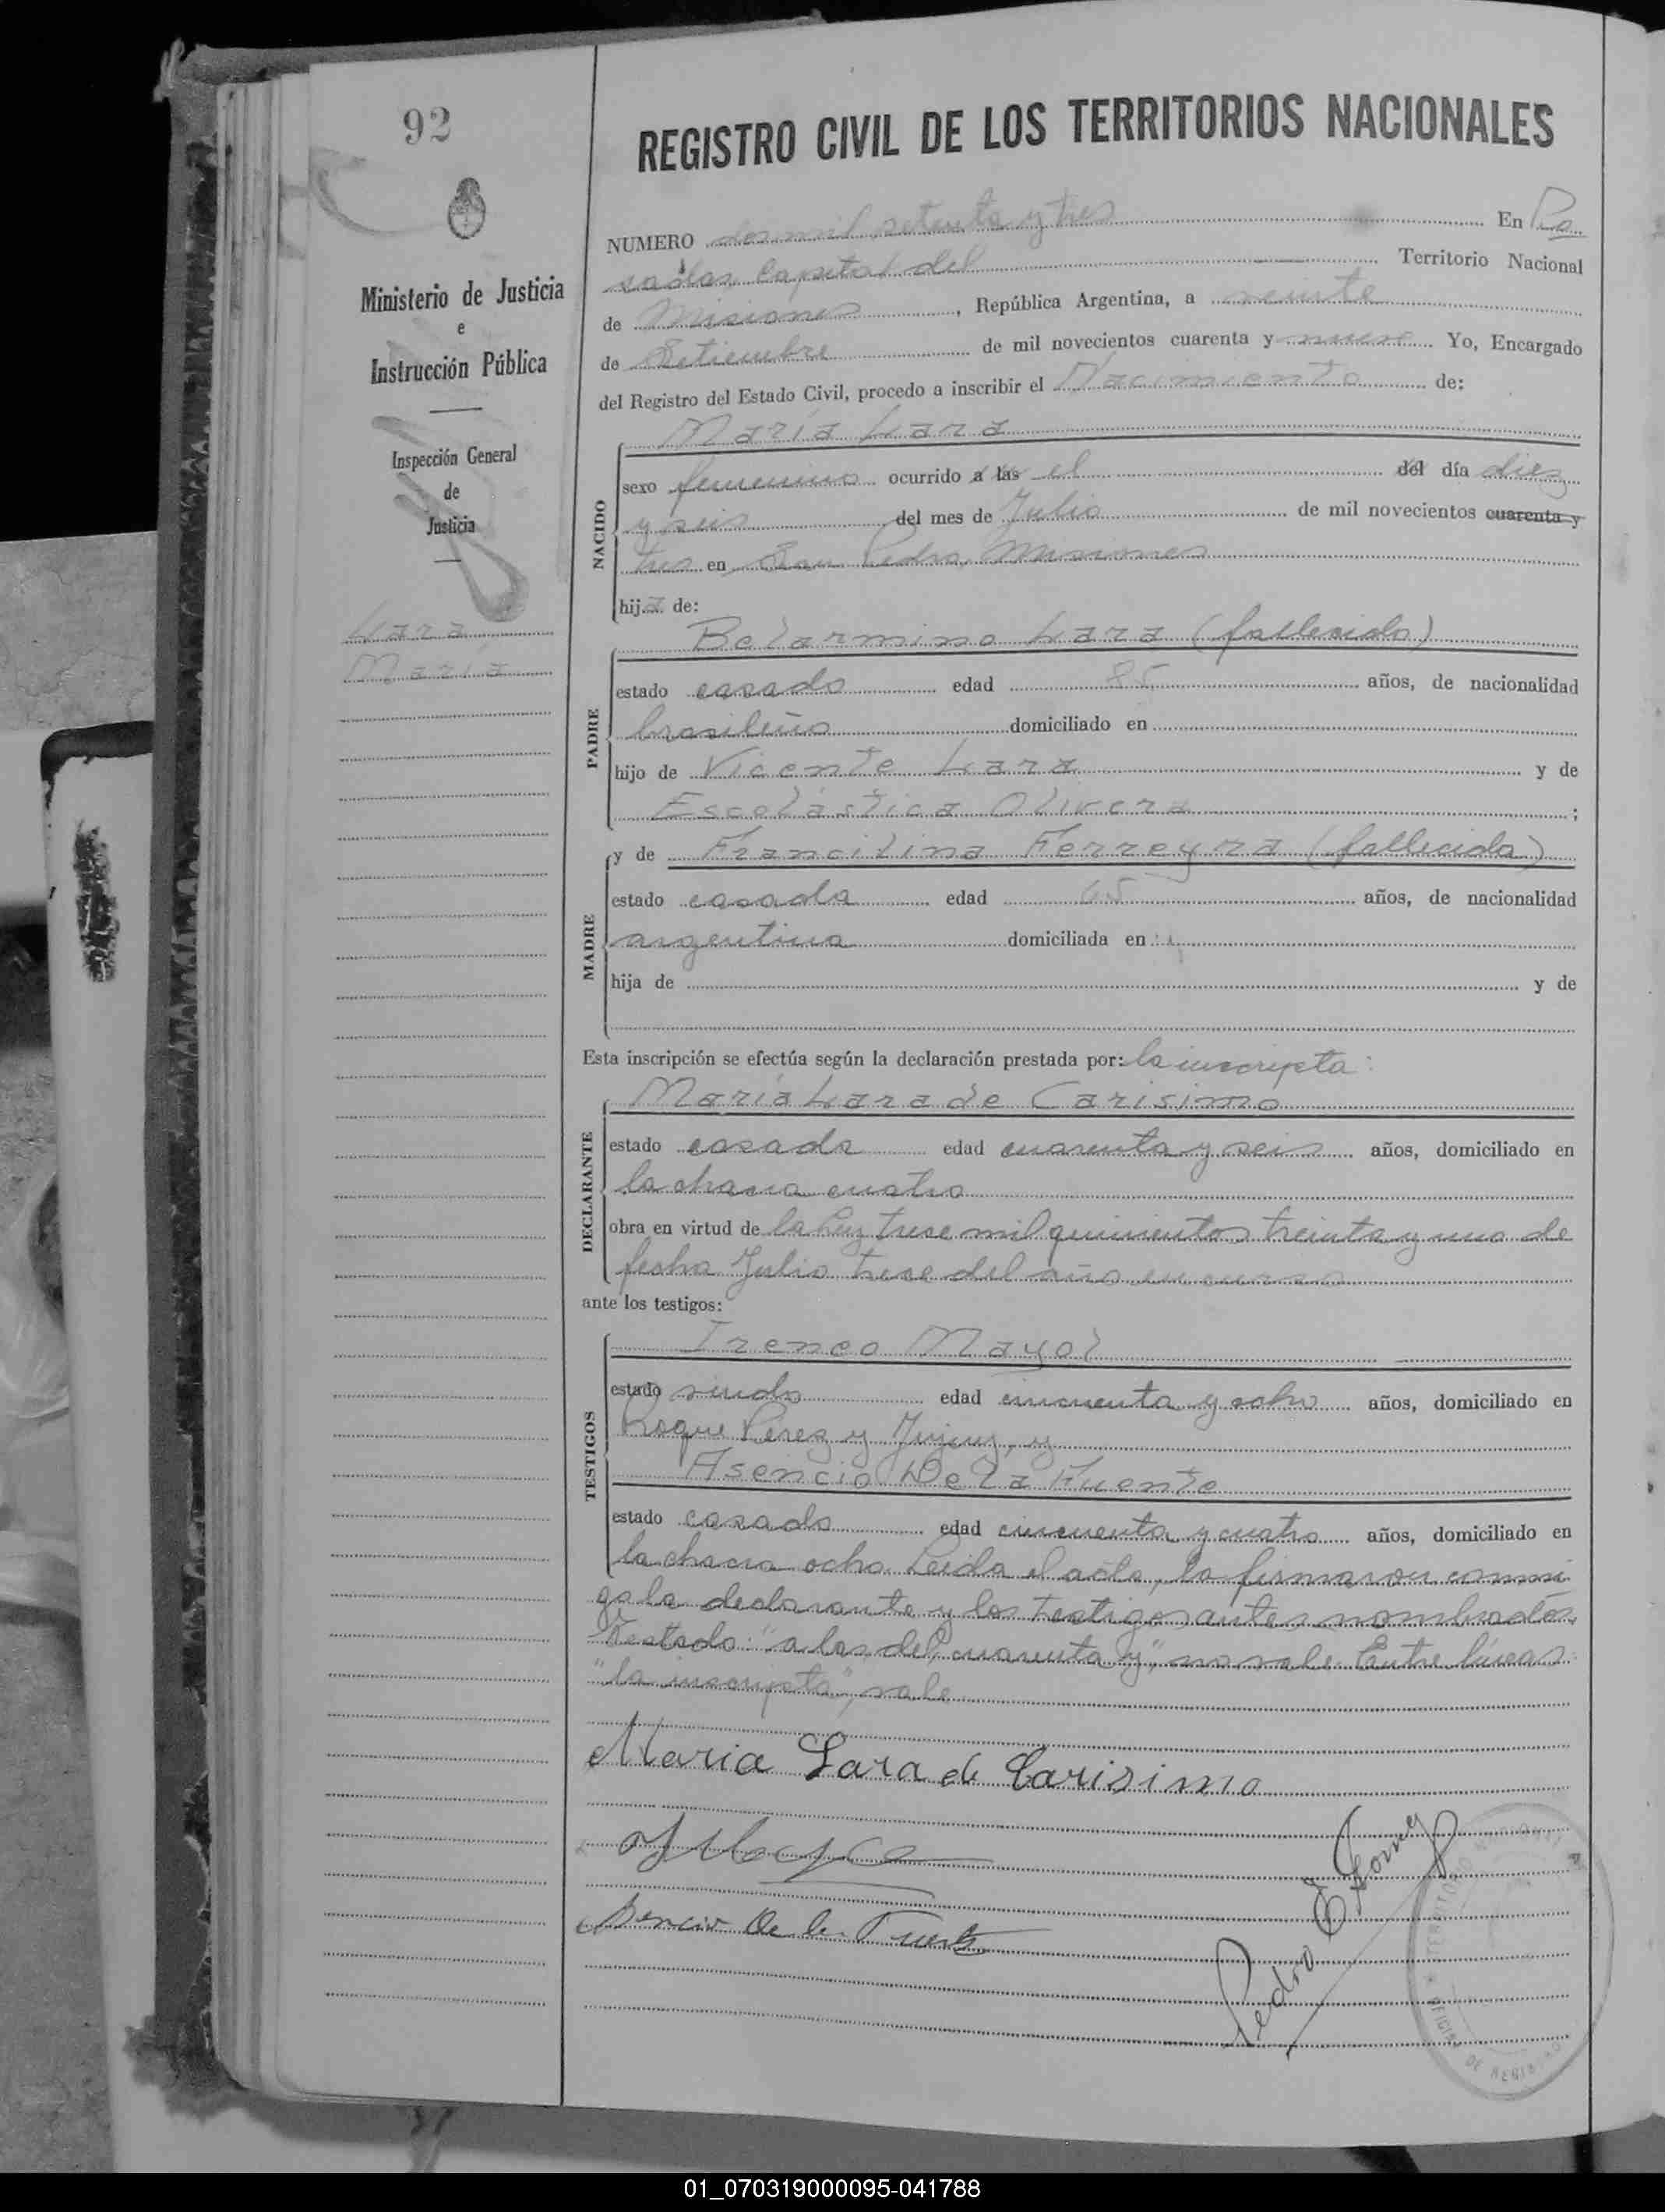 92
REGISTRO CIVIL DE LOS TERRITORIOS NACIONALES
Ministerio de Justicia
e
Instrucción Pública
Inspección General
de
Justicia
Lara
María
NUMERO dos mil setenta y tres En Po
sadas, Capital del Territorio Nacional
de Misiones, República Argentina, a veinte
de Setiembre de mil novecientos cuarenta y nueve Yo, Encargado
del Registro del Estado Civil, procedo a inscribir el Nacimiento de:
María Lara
NACIDO
sexo femenino ocurrido a las el del día diez
y seis del mes de Julio de mil novecientos cuarenta y
tres en San Pedro, Misiones
hija de:
Belarmino Lara (fallecido)
PADRE
estado casado edad 85 años, de nacionalidad
brasileño domiciliado en
hijo de Vicente Lara y de
Escolástica Olivera;
y de Francilina Ferreyra (fallecida)
MADRE
estado casada edad 65 años, de nacionalidad
argentina domiciliada en
hija de y de
Esta inscripción se efectúa según la declaración prestada por: la inscripta:
María Lara de Carisimo
DECLARANTE
estado casada edad cuarenta y seis años, domiciliado en
la chacra cuatro
obra en virtud de la Ley trece mil quinientos treinta y uno de
fecha Julio trece del año en curso
ante los testigos:
Ireneo Mayol
TESTIGOS
estado viudo edad cincuenta y ocho años, domiciliado en
Roque Pérez y Jujuy, y
Asencio De la Fuente
estado casado edad cincuenta y cuatro años, domiciliado en
la chacra ocho. Leída el acta, la firmaron conmi
go la declarante y los testigos antes nombrados.
Testado: "a las, del, cuarenta y", no vale. Entre líneas:
"la inscripta", vale
Maria Lara de Carisimo
Asencio De la Fuente
Pedro
01_070319000095-041788